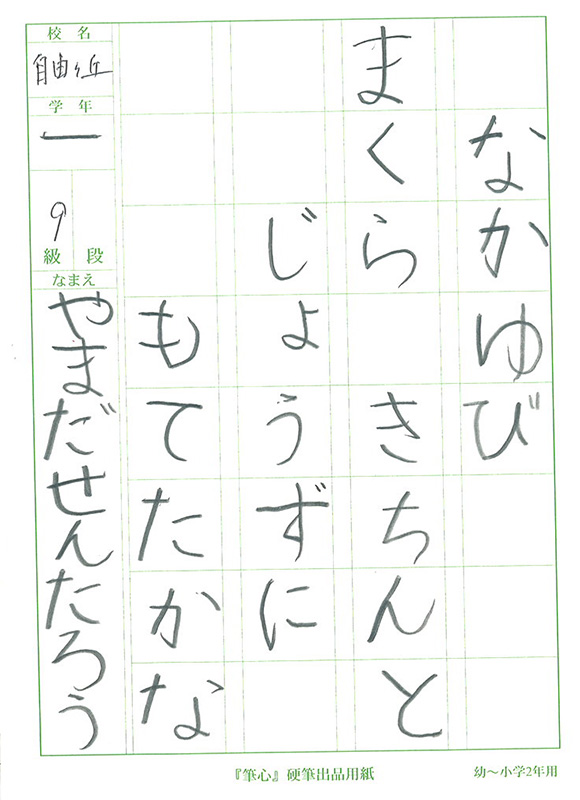 なかゆび
まくら きちんと
じょうずに
もてたかな
校名
自由ヶ丘
学年
一
9
級 段
なまえ
やまだせんたろう
『筆心』硬筆出品用紙
幼～小学2年用